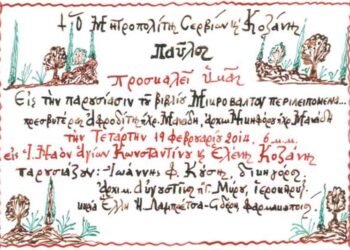 † Ὁ Μητροπολίτης Σερβίων κ' Κοζάνης
Παῦλος
Προσκαλεῖ ὑμᾶς
Εἰς τὴν παρουσίασιν τοῦ βιβλίου Μικροβάλτου περιλειπόμενα...
πρεσβυτέρας Ἀφροδίτης χας Μανάδη, ἀρχιμ. Νικηφόρου χας Μανάδη
τὴν Τετάρτην 19 Φεβρουαρίου 2014. 6 μ.μ.
εἰς Ἱ. Ναὸν ἁγίων Κωνσταντίνου κ' Ἑλένης Κοζάνης
παρουσιάζουν: -Ἰωάννης Φ. Κύσης, δικηγόρος
ἀρχιμ. Αὐγουστῖνος Μύρου, ἱεροκήρυξ
κυρία Ἕλλη Λαμπρέτσα- φαρμακοποιός